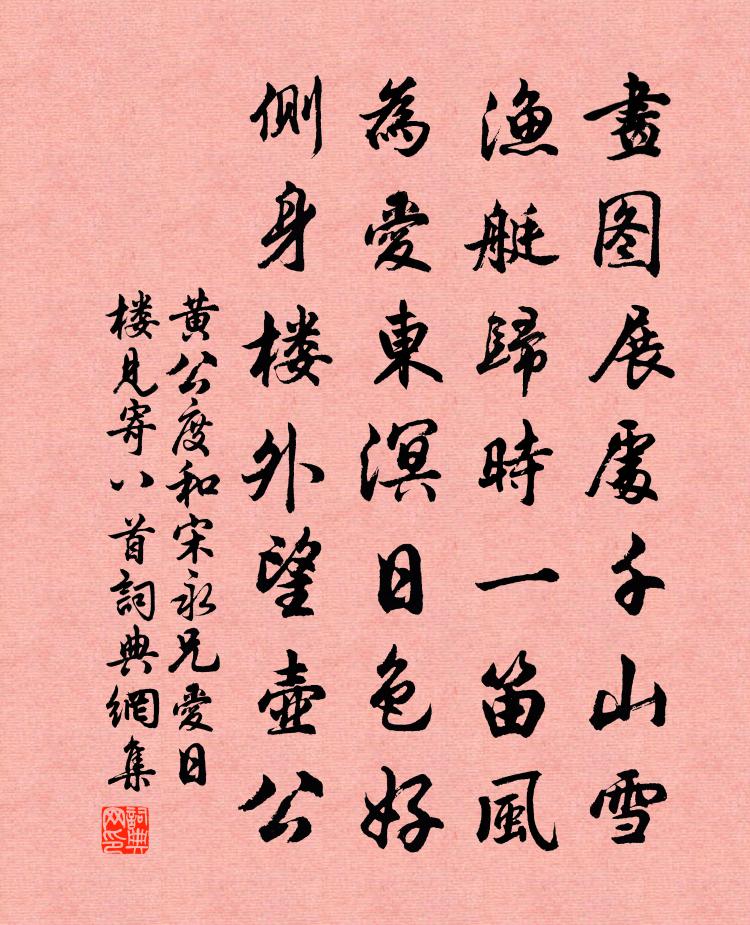 畫图展處千山雪
漁艇歸時一笛風
為愛東溟日色好
側身楼外望壺公
黄公度和宋永兄愛日
楼見寄八首詞典網集
詞典
网印